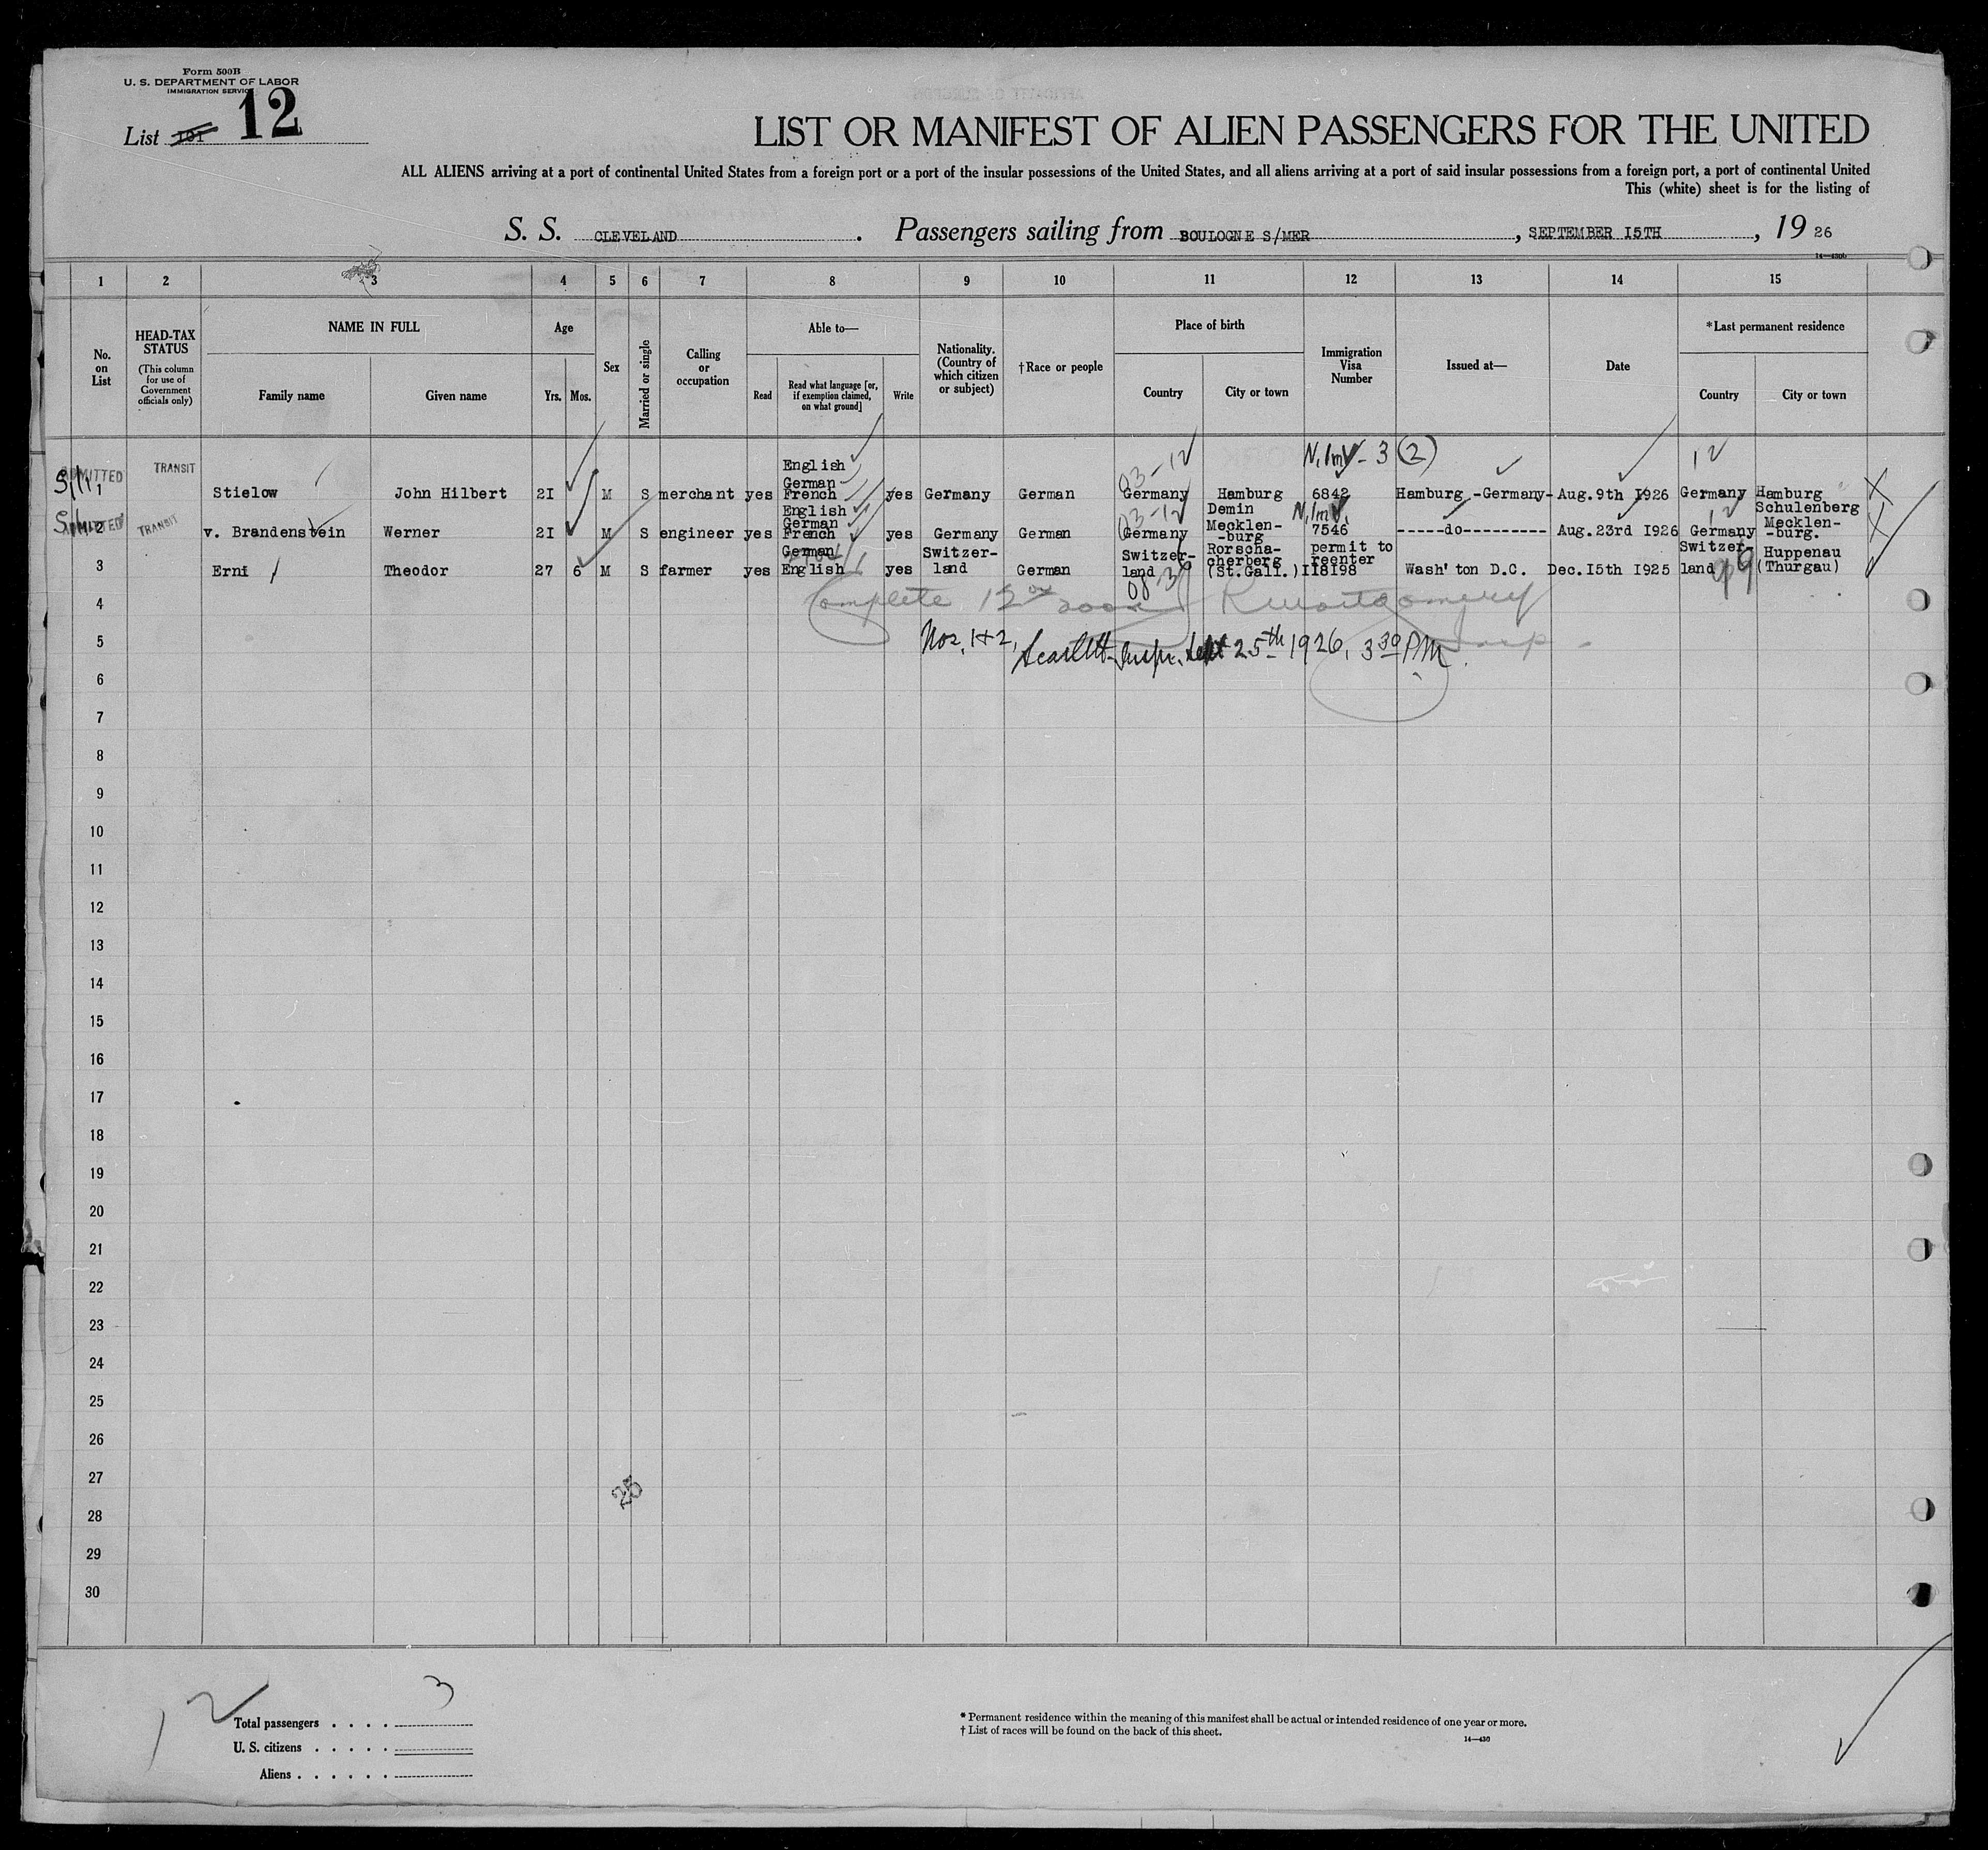 Form 500B
U. S. DEPARTMENT OF LABOR
IMMIGRATION SERVICE
List 101 12
LIST OR MANIFEST OF ALIEN PASSENGERS FOR THE UNITED
ALL ALIENS arriving at a port of continental United States from a foreign port or a port of the insular possessions of the United States, and all aliens arriving at a port of said insular possessions from a foreign port, a port of continental United
This (white) sheet is for the listing of
S. S. CLEVELAND . Passengers sailing from BOULOGNE S/MER , SEPTEMBER I5TH , 19 26
14—430b
1 2 3 4 5 6 7 8 9 10 11 12 13 14 15
No. on List
HEAD-TAX STATUS
(This column for use of Government officials only)
NAME IN FULL
Family name Given name
Age
Yrs. Mos.
Sex
Married or single
Calling or occupation
Able to—
Read Read what language [or, if exemption claimed, on what ground] Write
Nationality. (Country of which citizen or subject)
†Race or people
Place of birth
Country City or town
Immigration Visa Number
Issued at—
Date
*Last permanent residence
Country City or town
ADMITTED TRANSIT N.Imv - 3 (2)
1 Stielow John Hilbert 2I M S merchant yes English German French yes Germany German 03-12 Germany Hamburg 6842 Hamburg -Germany- Aug.9th I926 Germany Hamburg
ADMITTED TRANSIT
2 v. Brandenstein Werner 2I M S engineer yes English German French yes Germany German 03-12 Germany Demin Mecklen- -burg N.Imv. 7546 -----do---------- Aug.23rd I926 Germany Schulenberg Mecklen- -burg.
3 Erni Theodor 27 6 M S farmer yes German English yes Switzer- land German Switzer- land Rorscha- cherberg (St.Gall.) permit to reenter II8I98 Wash'ton D.C. Dec.I5th I925 Switzer- land Huppenau (Thurgau)
4 Complete Kmontgomery
5 Nos. 1+2, Scarlett Inspr. Sept 25th 1926, 3 30 PM
6
7
8
9
10
11
12
13
14
15
16
17
18
19
20
21
22
23
24
25
26
27
28
29
30
25
3
Total passengers . . . .
U. S. citizens . . . . .
Aliens . . . . . .
* Permanent residence within the meaning of this manifest shall be actual or intended residence of one year or more.
† List of races will be found on the back of this sheet.
14—430